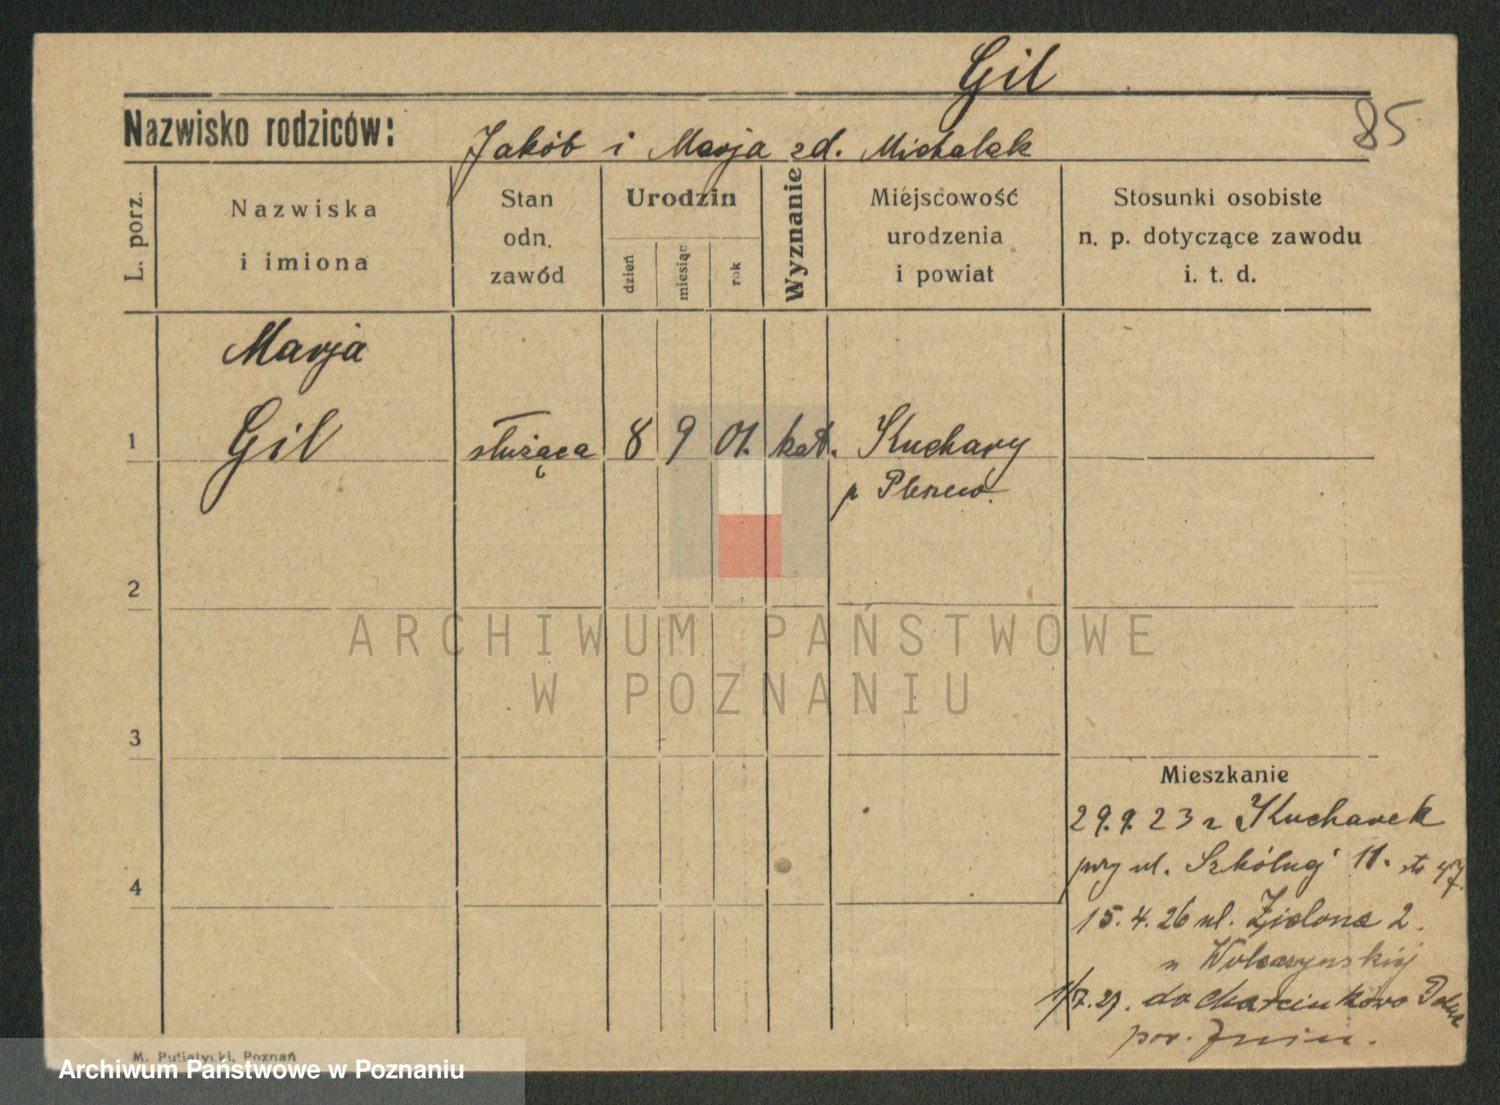 Gil
85
Nazwisko rodziców:
Jakób i Marja zd. Michalak
L. porz.
Nazwiska
i imiona
Stan
odn.
zawód
Urodzin
dzień
miesiąc
rok
Wyznanie
Miejscowość
urodzenia
i powiat
Stosunki osobiste
n. p. dotyczące zawodu
i. t. d.
Marja
1
Gil
służąca
8
9
01.
kat.
Kuchary
p Pleszew.
2
ARCHIWUM PAŃSTWOWE
W POZNANIU
3
Mieszkanie
29.9.23 z Kucharek
przy ul. 11.
4
15.4.26 ul. Zielona 2.
1/7.27. do Marcinkowo
pow. Żnin.
M. Putiatycki, Poznań
Archiwum Państwowe w Poznaniu